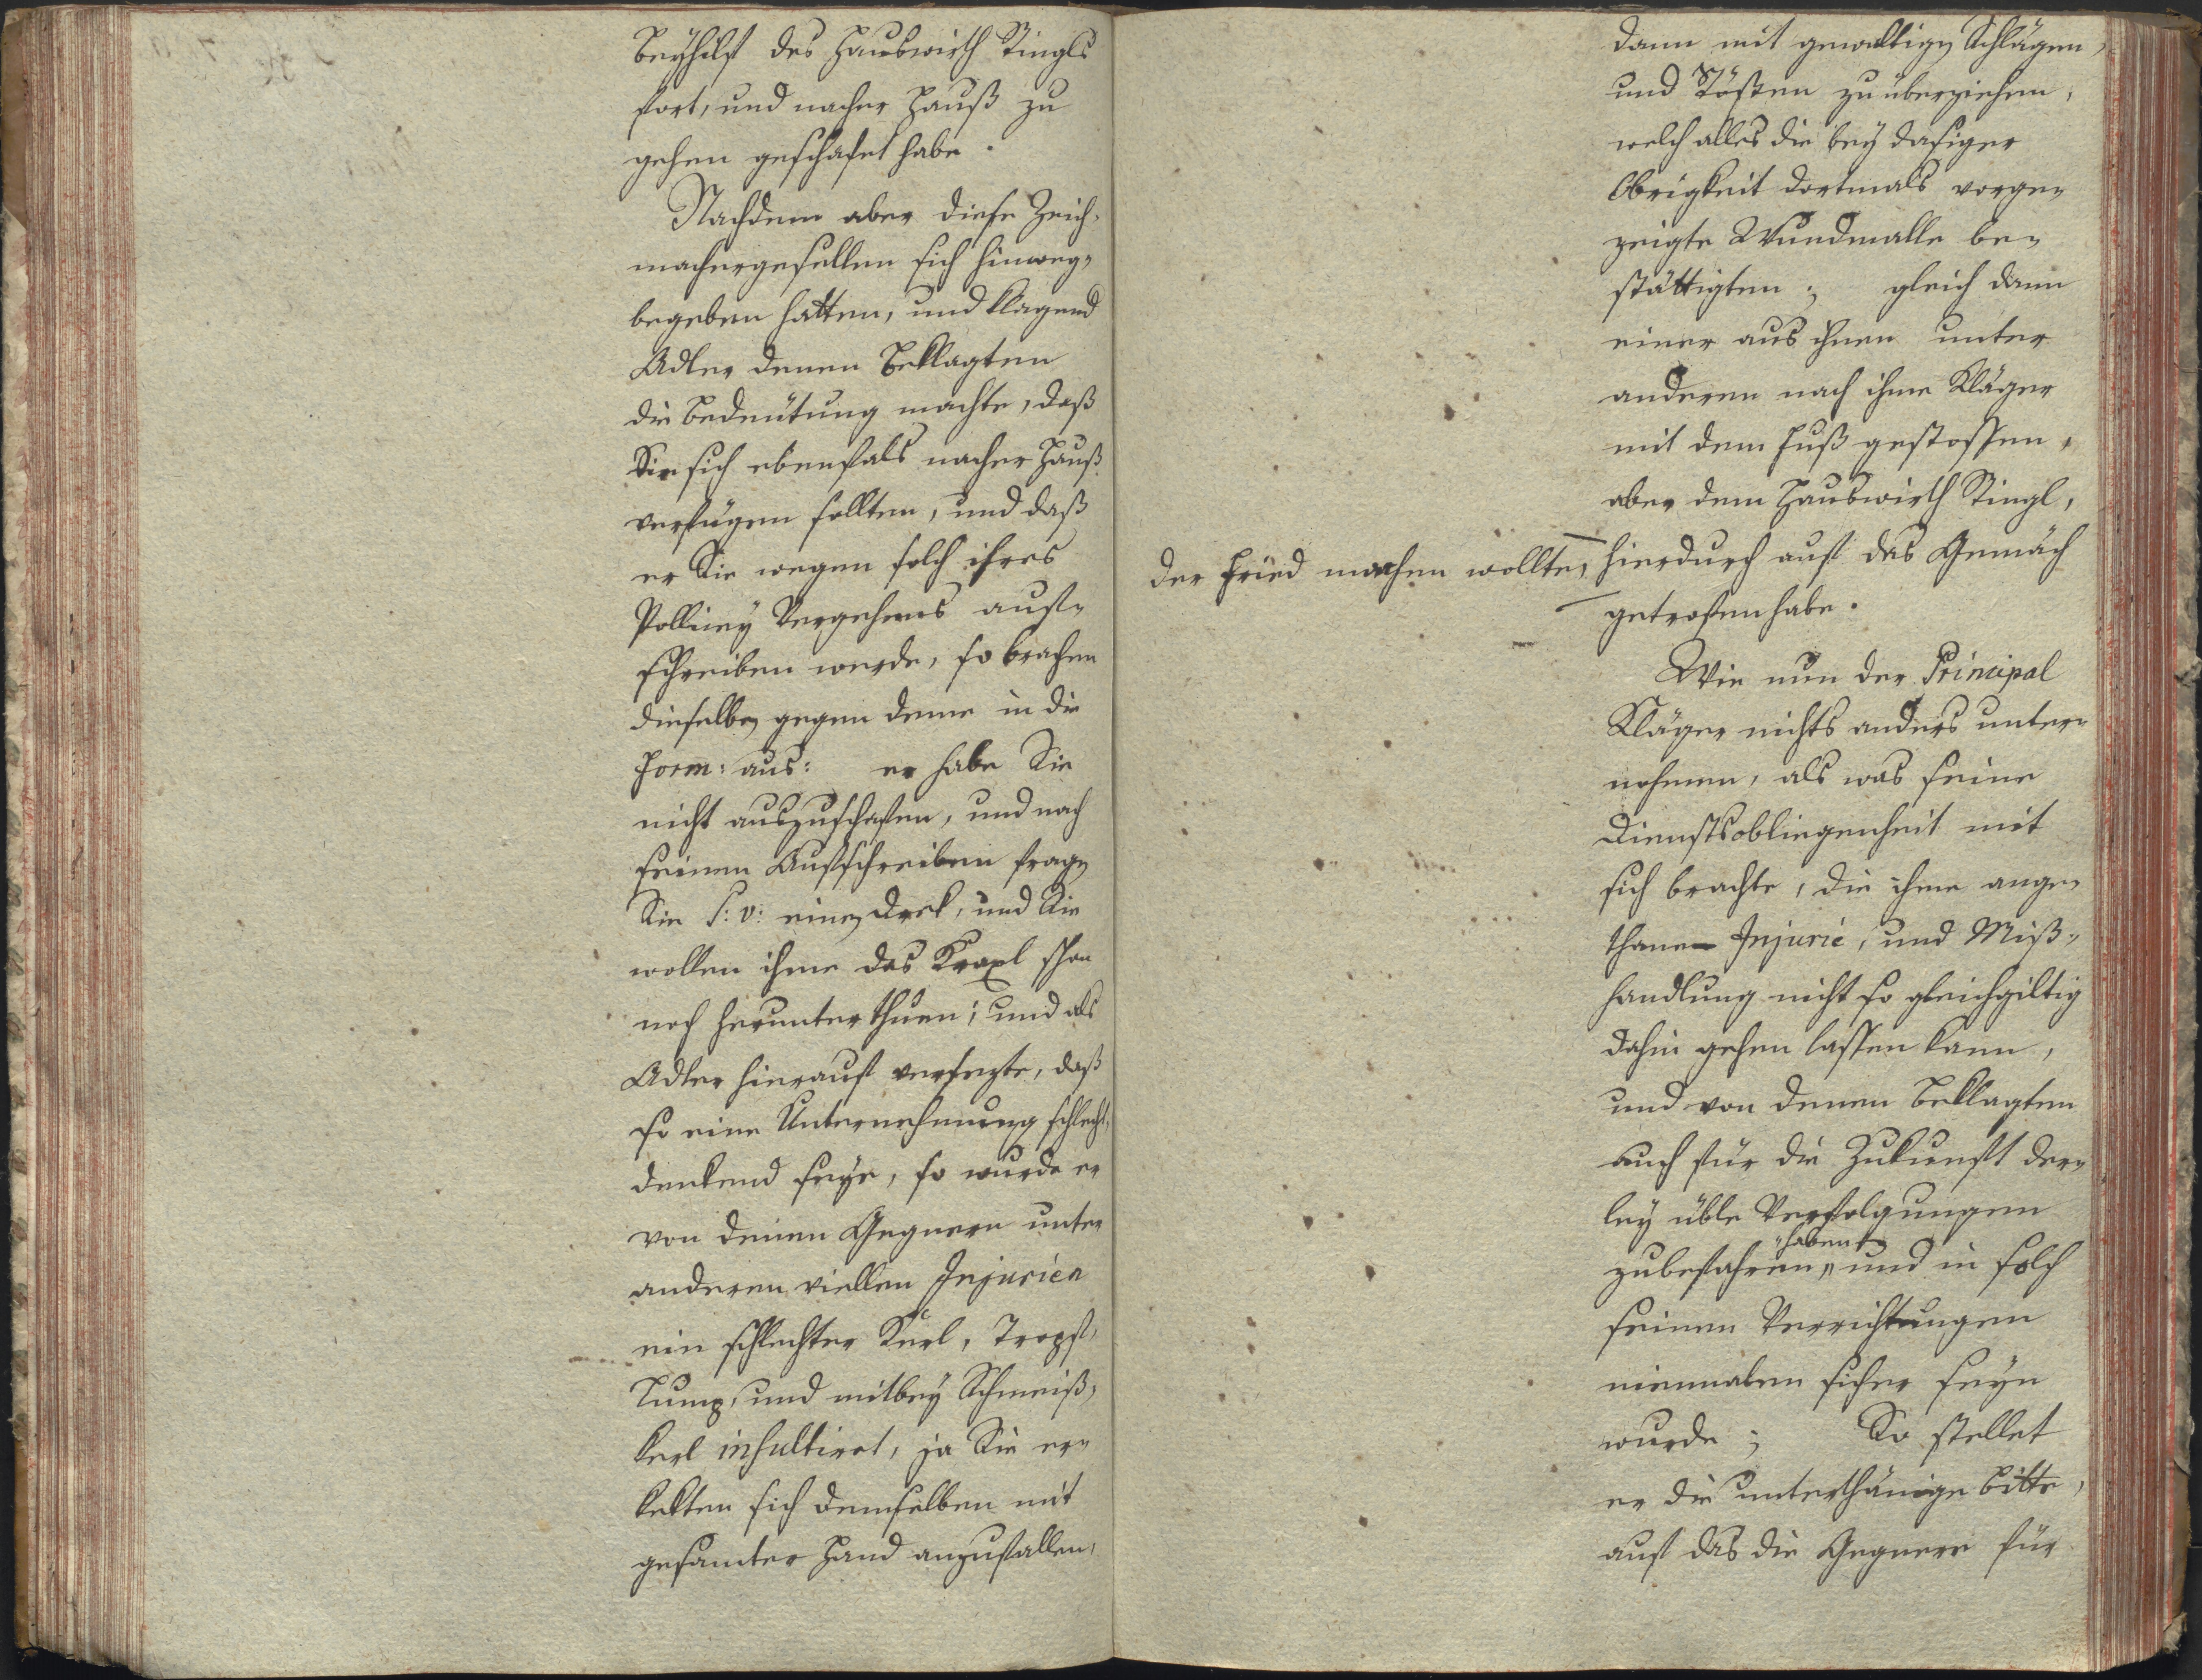 Beyhilf des Hauswirth Stingls
fort, und nacher Hauß zu
gehen geschafet habe.
Nachdeme aber diese Zeich-
machergesellen sich hinweg-
begeben hatten, und klagend
Adler denen Beklagten
die Bedeutung machte, daß
Sie sich ebenfals nacher Hauß
verfügen sollten, und daß
er Sie wegen solch ihres
Pollicey Vergehens auf-
schreiben werde, so brachen
dieselben gegen deme in die
Form: aus: er habe Sie
nicht auszuschafen, und nach
seinem Aufschreiben fragen
Sie s: v: einen dreck, und Sie
wollen ihme das Kraxl schon
noch herunter thuen; und als
Adler hierauf versezte, daß
so eine Unternehmung schlecht-
denkend seye, so wurde er
von deinen Gegnern unter
anderen viellen Injurien
ein schlechter Kerl, Tropf,
Lump, und mitbey Schmeiß-
kerl insultirt, ja Sie er-
kekten sich demselben mit
gesamter Hand anzufallen,
dann mit gewaltigen Schlägen,
und Stößen zu überziehen,
welch alles die bey dasiger
Obrigkeit dortmals vorge-
zeigte Wundmalle be-
stättigten; gleich dann
einer aus ihnen unter
anderen nach ihme Kläger
mit dem Fuß gestossen,
aber dem Hauswirth Stingl,
der Fried machen wollte, hierdurch auf das Gemäch
getrofen habe.
Wie nun der Principal
Kläger nichts anders unter-
nohmen, als was seine
Dienstsobliegenheit mit
sich brachte, die ihme ange-
thane Injurie, und Miß-
handlung nicht so gleichgiltig
dahin gehen lassen kann,
und von denen Beklagten
auch für die Zukunft der-
ley üble Verfolgungen
haben
zubefahren, und in solch
seinen Verrichtungen
niemalen sicher seyn
wurde; So stellet
er die unterthänige Bitte,
auf das die Gegnere für